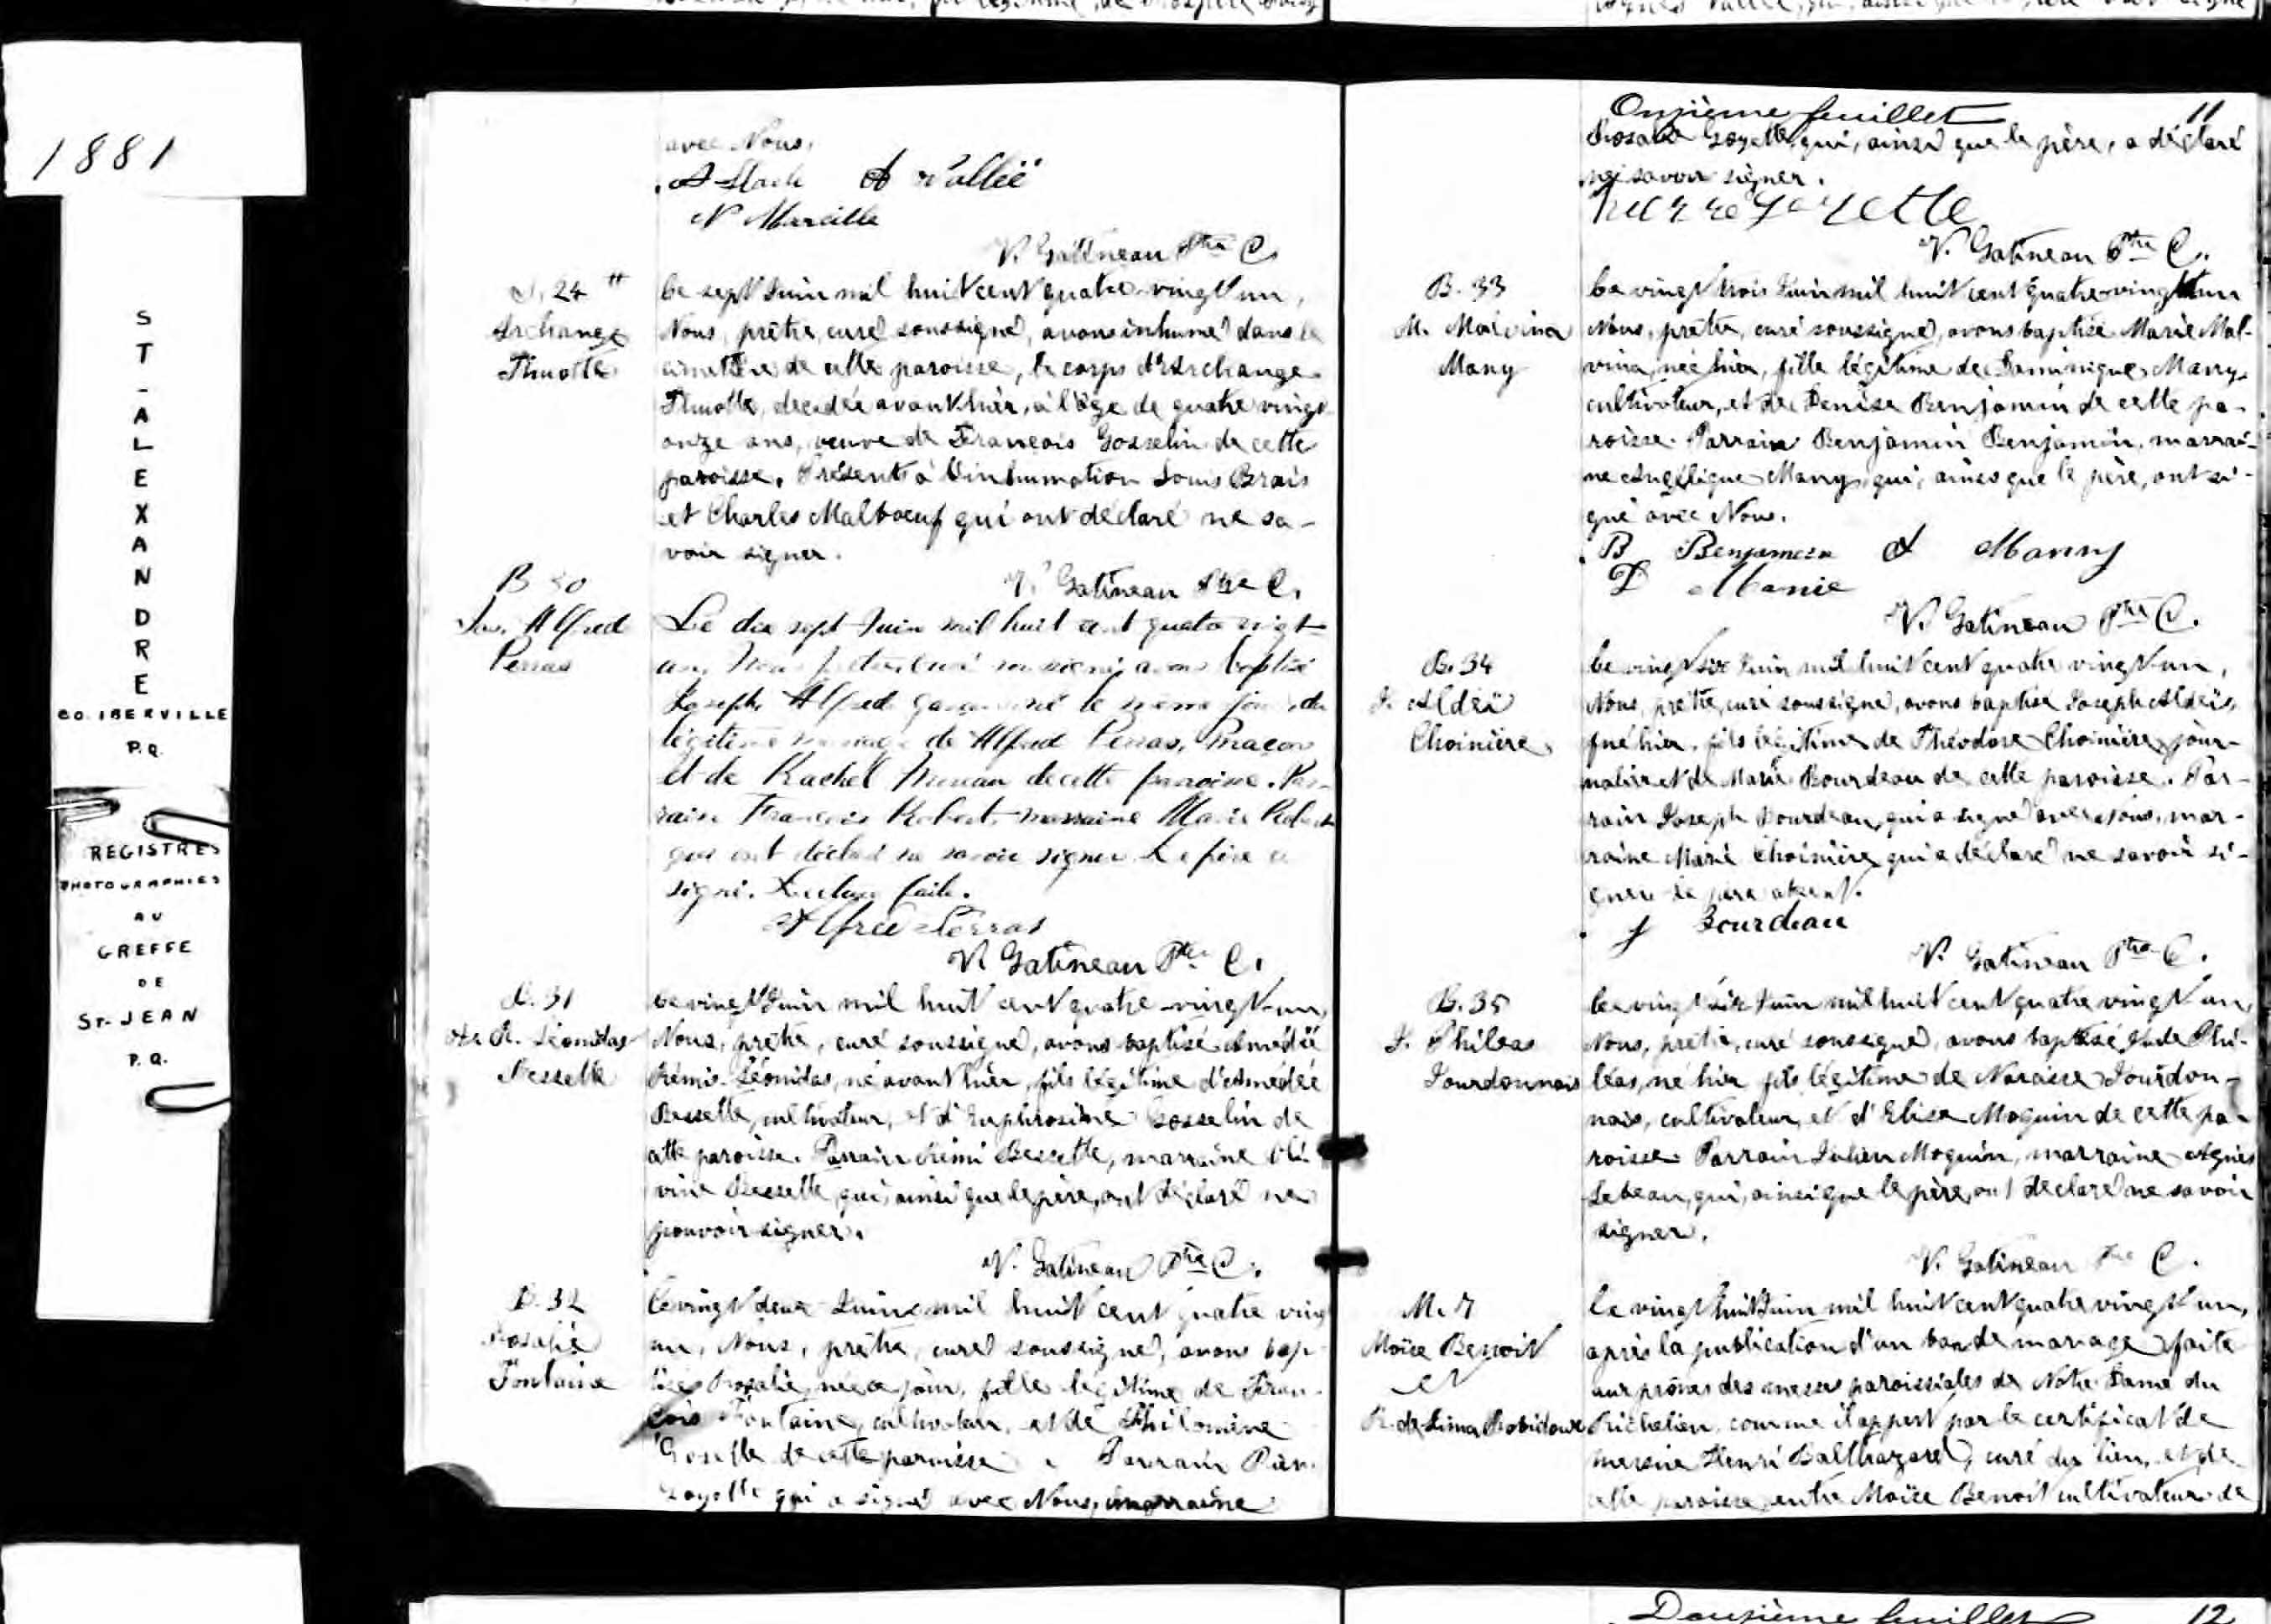 1881
ST-ALEXANDRE
CO. IBERVILLE
P.Q.
REGISTRES
PHOTOGRAPHIES
AU
GREFFE
DE
ST-JEAN
P.Q.
avec Nous,
A Vallée
N Marcille
V. Gatineau Ptre C.
S. 24
Archange
Le sept Juin mil huit cent quatre-vingt un,
Nous, prêtre, curé soussigné, avons inhumé dans le
cimetière de cette paroisse, le corps d'Archange
décédée avant hier, à l'âge de quatre vingt
onze ans, veuve de François Gosselin de cette
paroisse. Présents à l'inhumation Louis Brais
et Charles Malboeuf qui ont déclaré ne sa-
voir signer.
V. Gatineau Ptre C.
B 30
Jos. Alfred
Perras
Le dix sept Juin mil huit cent quatre vingt
un, Nous prêtre curé soussigné, avons baptisé
Joseph Alfred né le même jour, du
légitime mariage de Alfred Perras, Maçon
et de Rachel de cette paroisse. Par-
rain François Robert marraine Marie Robert
qui ont déclaré ne savoir signer. Le père a
signé. Lecture faite.
Alfred Perras
V. Gatineau Ptre C.
B. 31
Am. R. Léonidas
Bessette
Le vingt Juin mil huit cent quatre-vingt-un,
Nous, prêtre, curé soussigné, avons baptisé Amédée
Rémi-Léonidas, né avant hier, fils légitime d'Amédée
Bessette, cultivateur, et d'Euphrosine Gosselin de
cette paroisse. Parrain Rémi Bessette, marraine
Bessette, qui, ainsi que le père, ont déclaré ne
pouvoir signer.
V. Gatineau Ptre C.
B. 32
Rosalie
Fontaine
Le vingt deux Juin mil huit cent quatre vingt
un, Nous, prêtre, curé soussigné, avons bap-
tisé Rosalie, née ce jour, fille légitime de Fran-
çois Fontaine, cultivateur, et de Philomène
Goyette de cette paroisse. Parrain
Goyette qui a signé avec Nous, marraine
Onzième feuillet 11
Rosalie Goyette, qui, ainsi que le père, a déclaré
ne savoir signer.
V. Gatineau Ptre C.
B. 33
M. Malvina
Many
Le vingt trois Juin mil huit cent quatre-vingt un
Nous, prêtre, curé soussigné, avons baptisé Marie Mal-
vina, née hier, fille légitime de Dominique Many,
cultivateur, et de Denise Benjamin de cette pa-
roisse. Parrain Benjamin Benjamin, marrai-
ne Angélique Many qui, ainsi que le père, ont si-
gné avec Nous.
B Benjamin A Manny
D Manie
V. Gatineau Ptre C.
B. 34
J. Aldéï
Choinière
Le vingt six Juin mil huit cent quatre vingt-un,
Nous, prêtre, curé soussigné, avons baptisé Joseph
né hier, fils légitime de Théodore Choinière, jour-
nalier et de Marie Bourdeau de cette paroisse. Par-
rain Joseph Bourdeau, qui a signé avec Nous, mar-
raine Marie Choinière qui a déclaré ne savoir si-
gner. Le père absent.
J Bourdeau
V. Gatineau Ptre C.
B. 35
J. Philéas
Jourdonnais
Le vingt six Juin mil huit cent quatre vingt un,
Nous, prêtre, curé soussigné, avons baptisé Jude Phi-
léas, né hier fils légitime de Narcisse Jourdon-
nais, cultivateur, et d'Elise Moquin de cette pa-
roisse. Parrain Julien Moquin, marraine Agnès
Lebeau, qui, ainsi que le père, ont déclaré ne savoir
signer.
V. Gatineau Ptre C.
M. 7
Moïse Benoit
et
R. de Lima Robidoux
Le vingt huit Juin mil huit cent quatre vingt un,
après la publication d'un ban de mariage faite
aux prônes des messes paroissiales de Notre Dame du
Richelieu, comme il appert par le certificat de
messire Henri Balthazard, curé du lieu, et de
cette paroisse, entre Moïse Benoit cultivateur de
Douzième feuillet 12